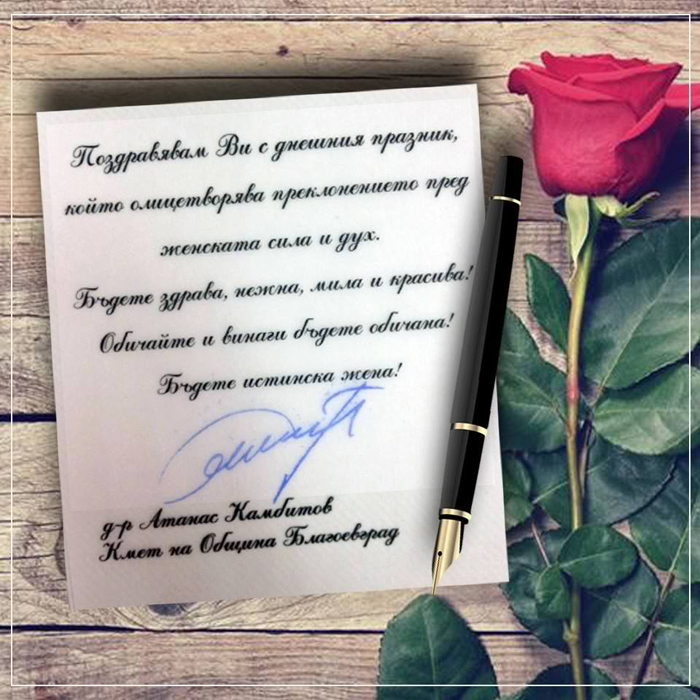 Поздравявам Ви с днешния празник,
който олицетворява преклонението пред
женската сила и дух.
Бъдете здрава, нежна, мила и красива!
Обичайте и винаги бъдете обичана!
Бъдете истинска жена!
д-р Атанас Камбитов
Кмет на Община Благоевград